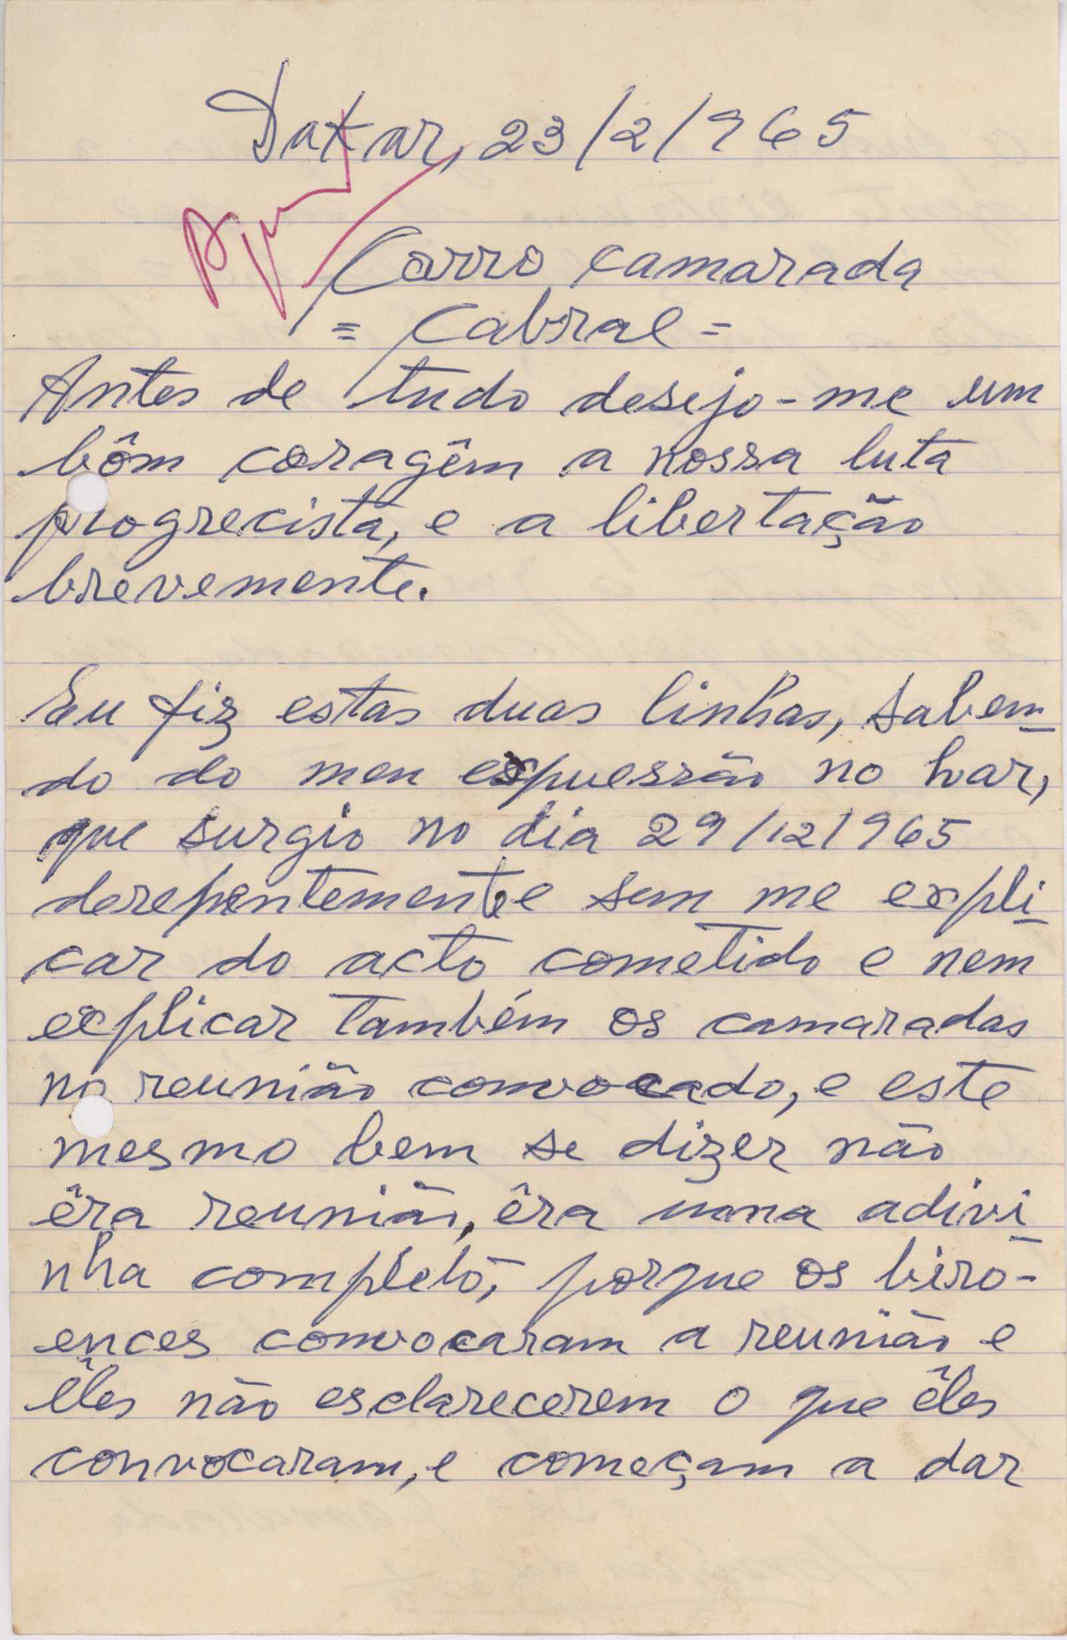 Dakar, 23/2/965
Carro camarada
= Cabral =
Antes de tudo desejo-me um
bôm coragêm a nossa luta
progrecista, e a libertação
brevemente.
Eu fiz estas duas linhas, sabem-
do do meu expuessão no har,
que surgio no dia 29/12/965
derepentemente sem me expli-
car do acto cometido e nem
explicar também os camaradas
no reunião convocado, e este
mesmo bem se dizer não
êra reunião, êra uma adivi-
nha completo, porque os biro-
ences convocaram a reunião e
êles não esclarecerem o que êles
convocaram, e começam a dar